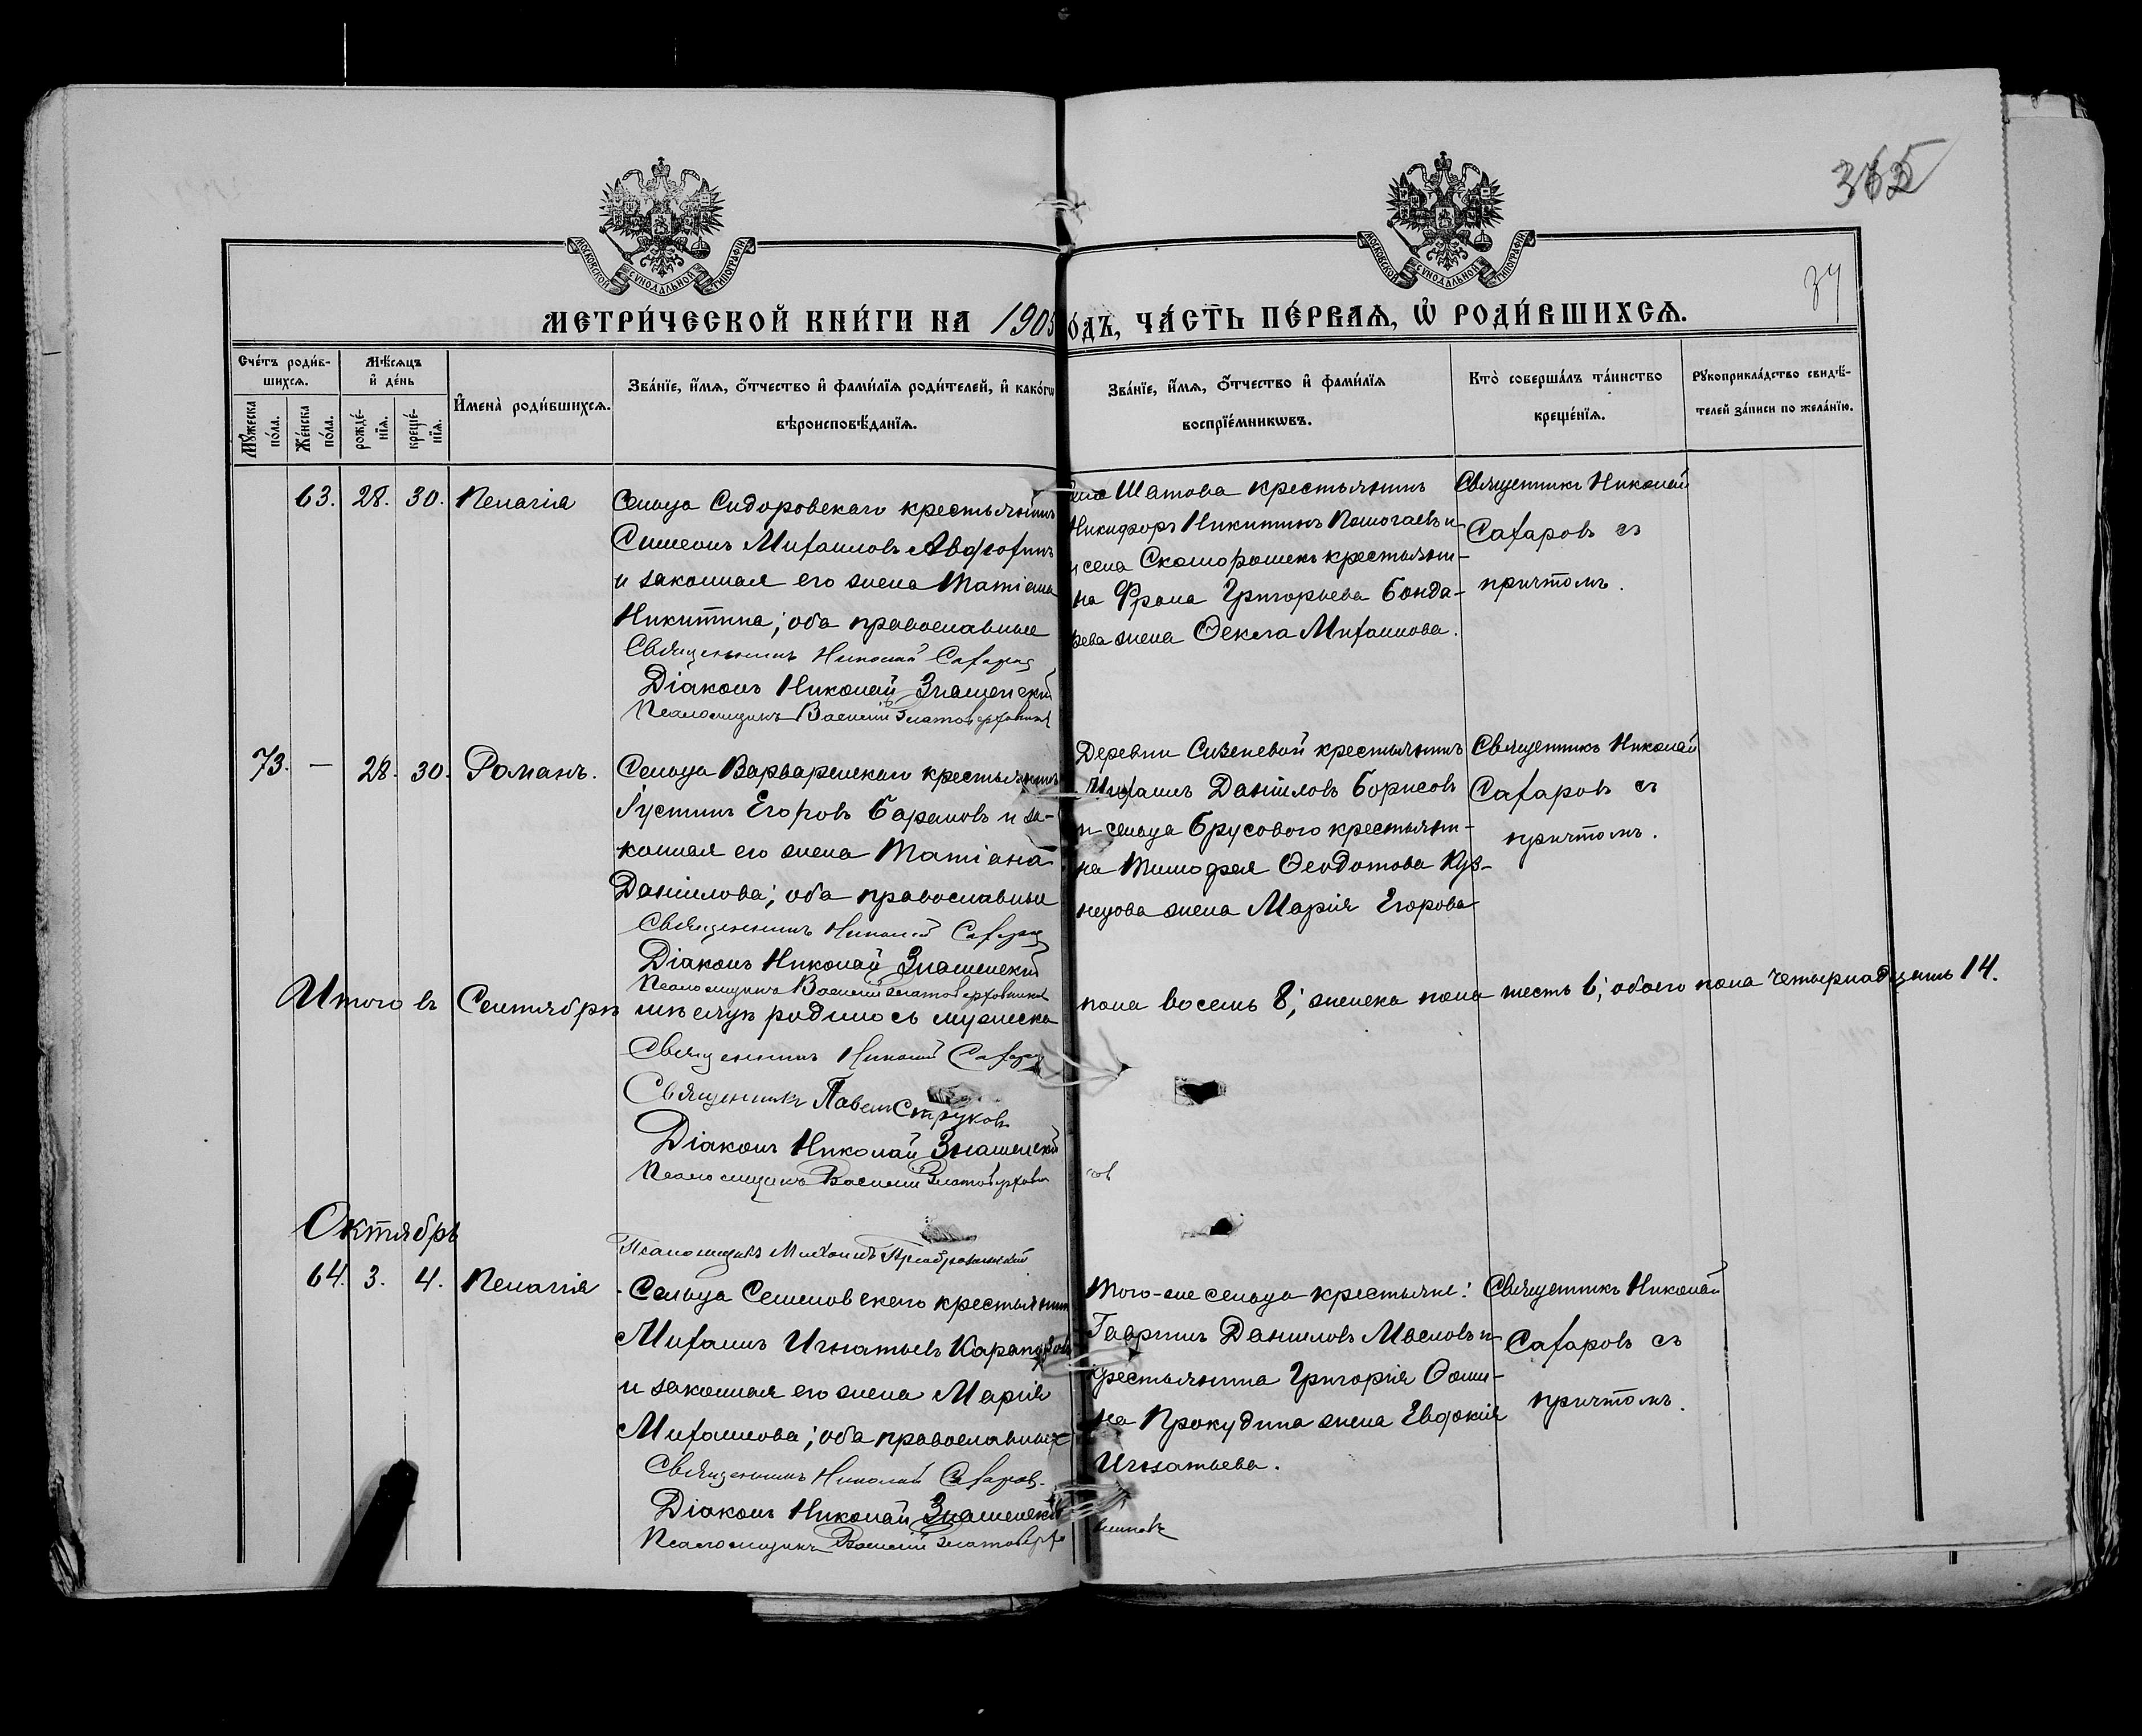 365
34
МОСКОВСКОЙ СѴНОДАЛЬНОЙ ТИПОГРАФІИ
МОСКОВСКОЙ СѴНОДАЛЬНОЙ ТИПОГРАФІИ
МЕТРИ́ЧЕСКОЙ КНИ́ГИ НА 1905 о́дъ, ЧА́СТЬ ПЕ́РВАѦ, Ѡ҆ РОДИ́ВШИХСѦ.
Сче́тъ роди́в-
шихсѧ.
Мꙋ́жеска по́ла.
Же́нска по́ла.
Мѣ́сѧцъ и҆ де́нь
рожде́-
нїѧ.
креще́-
нїѧ.
И҆мена̀ роди́вшихсѧ.
Зва́нїе, и҆́мѧ, ѻ҆́тчество и҆ фами́лїѧ роди́телей, и҆ како́гѡ
вѣроисповѣ́данїѧ.
Зва́нїе, и҆́мѧ, ѻ҆́тчество и҆ фами́лїѧ
воспрїе́мникѡвъ.
Кто̀ соверша́лъ та́инство
креще́нїѧ.
Рꙋкоприкла́дство свидѣ́-
телей за́писи по жела́нїю.
63. 28. 30. Пелагія
Сельца Сидоровскаго крестьянинъ
Симеонъ Михаиловъ Авдюхинъ
и законная его жена Татіана
Никитина; оба православные
Священникъ Николай Сахаровъ
Діаконъ Николай Знаменскій
Псаломщикъ Василій Златоверховниковъ
села Шатова крестьянинъ
Никифоръ Никитинъ и
и села Скоморошекъ крестьяни-
на Фрола Григорьева Бонда-
рева жена Ѳекла Михаилова.
Священникъ Николай
Сахаровъ съ
причтомъ.
73. — 28. 30. Романъ.
Сельца Варваринскаго крестьянинъ
Іустинъ Егоровъ Барановъ и за-
конная его жена Татіана
Даніилова; оба православные
Священникъ Николай Сахаровъ
Діаконъ Николай Знаменскій
Псаломщикъ Василій Златоверховниковъ
Деревни Сизеневой крестьянинъ
Михаилъ Даніиловъ Борисовъ
и сельца Брусового крестьяни-
на Тимофея Ѳеодотова Куз-
нецова жена Марія Егорова
Священникъ Николай
Сахаровъ съ
причтомъ.
Итого въ Сентябрѣ мѣсяцѣ родилось мужеска пола восемь 8; женска пола шесть 6; обоего пола четырнадцать 14.
Священникъ Николай Сахаровъ
Священникъ Павелъ Струковъ
Діаконъ Николай Знаменскій
Псаломщикъ Василій Златоверховниковъ
Псаломщикъ Михаилъ Преображенскій
Октябрь
64. 3. 4. Пелагія
Сельца Семеновскаго крестьянинъ
Михаилъ Игнатьевъ
и законная его жена Марія
Михаилова; оба православные
Священникъ Николай Сахаровъ.
Діаконъ Николай Знаменскій
Псаломщикъ Василій Златоверховниковъ
Того-же сельца крестьяне:
Гавріилъ Даниловъ и
крестьянина Григорія Ѳоми-
на Прокудина жена Евдокія
Игнатьева.
Священникъ Николай
Сахаровъ съ
причтомъ.